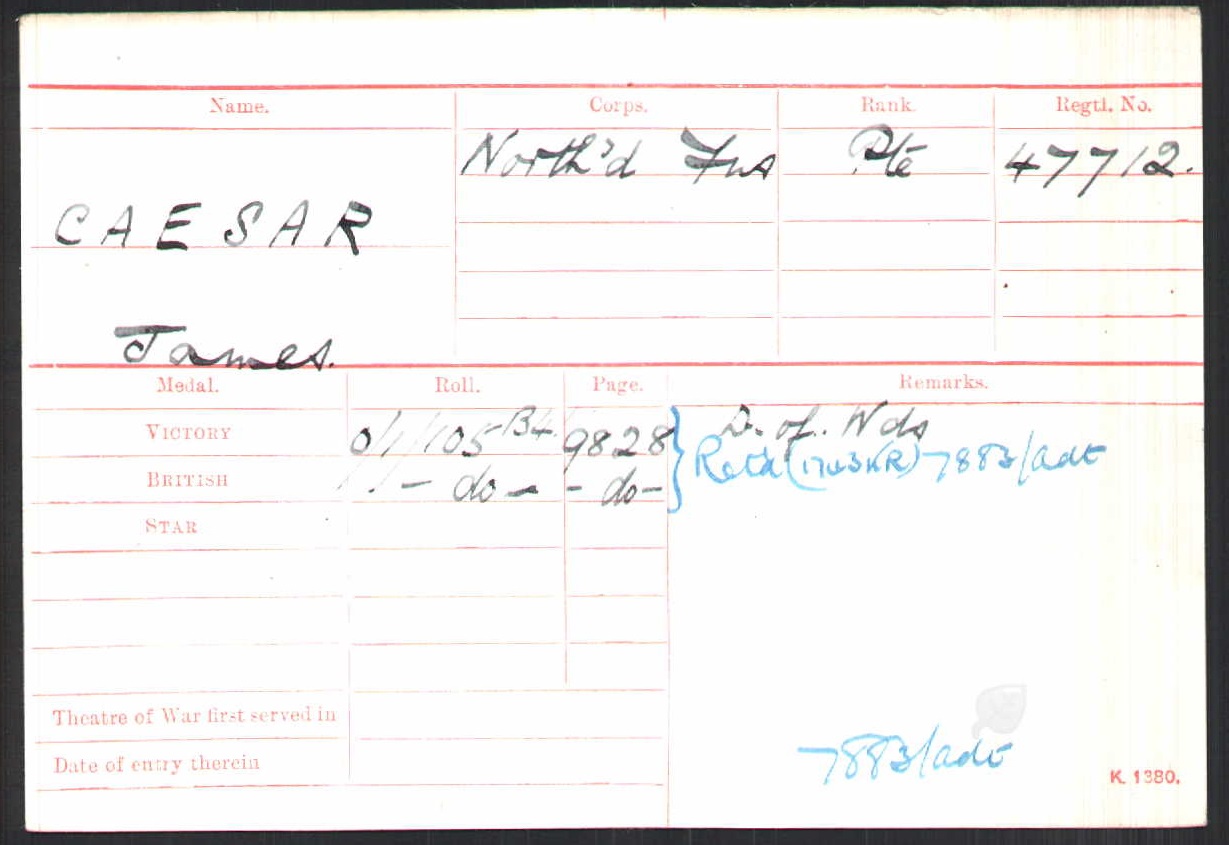 Name. Corps. Rank. Regtl. No.
North'd Fus Pte 47712.
CAESAR
James.
Medal. Roll. Page. Remarks.
VICTORY 0/1/105 B4. 9828 D. of. Wds
Retd (1743KR) 7883/adt
BRITISH - do - - do -
STAR
Theatre of War first served in
Date of entry therein
7883/adt
K. 1380.